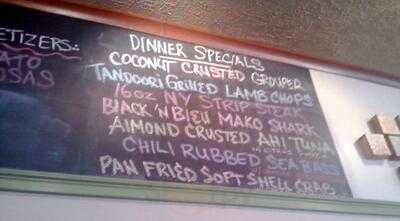 ETIZERS:
ATO
OSAS
DINNER SPECIALS
COCONUT CRUSTED GROUPER
TANDOORI GRILLED LAMB CHOPS
16oz NY STRIP STEAK
BLACK 'N BLEU MAKO SHARK
ALMOND CRUSTED AHI TUNA
CHILI RUBBED SEA BASS
PAN FRIED SOFT SHELL CRAB